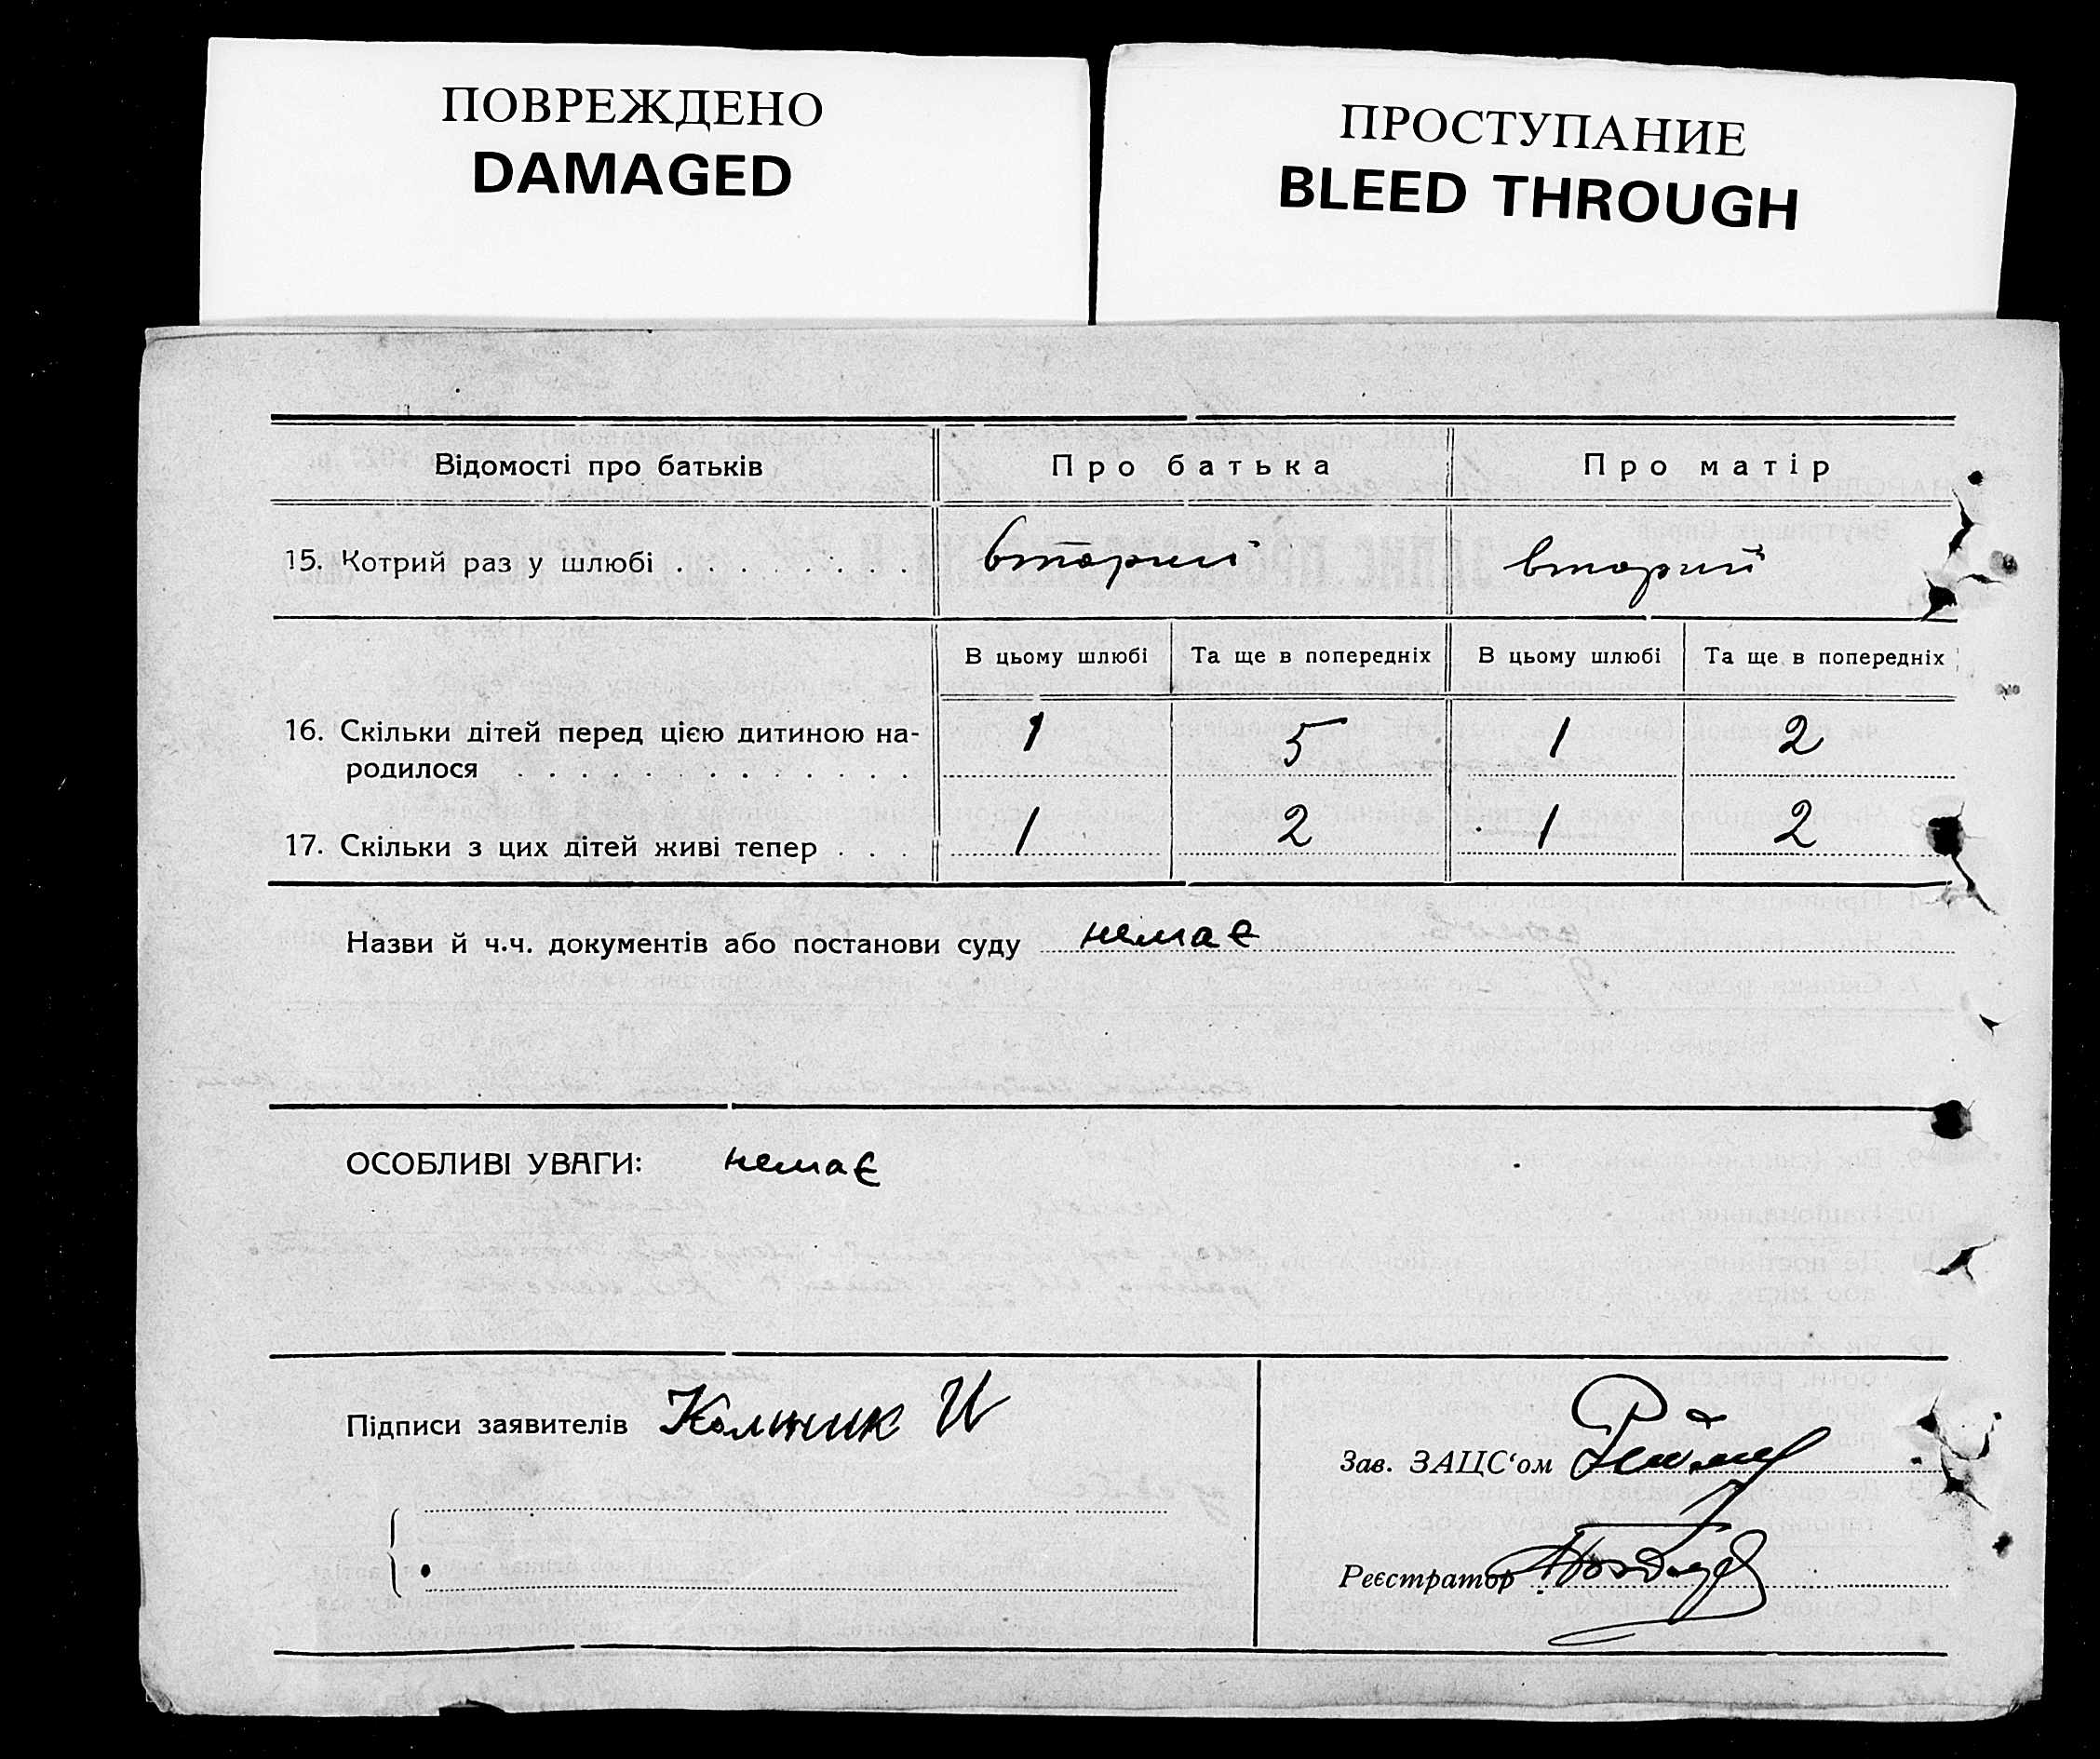 ПОВРЕЖДЕНО
DAMAGED
ПРОСТУПАНИЕ
BLEED THROUGH
Відомості про батьків Про батька Про матір
15. Котрий раз у шлюбі . . . . . . . . вторий вторий
В цьому шлюбі Та ще в попередніх В цьому шлюбі Та ще в попередніх
16. Скільки дітей перед цією дитиною на-
родилося . . . . . . . . . . . . . 1 5 1 2
17. Скільки з цих дітей живі тепер . . . 1 2 1 2
Назви й ч.ч. документів або постанови суду немає
ОСОБЛИВІ УВАГИ: немає
Підписи заявителів И
Зав. ЗАЦС‘ом
Реєстратор